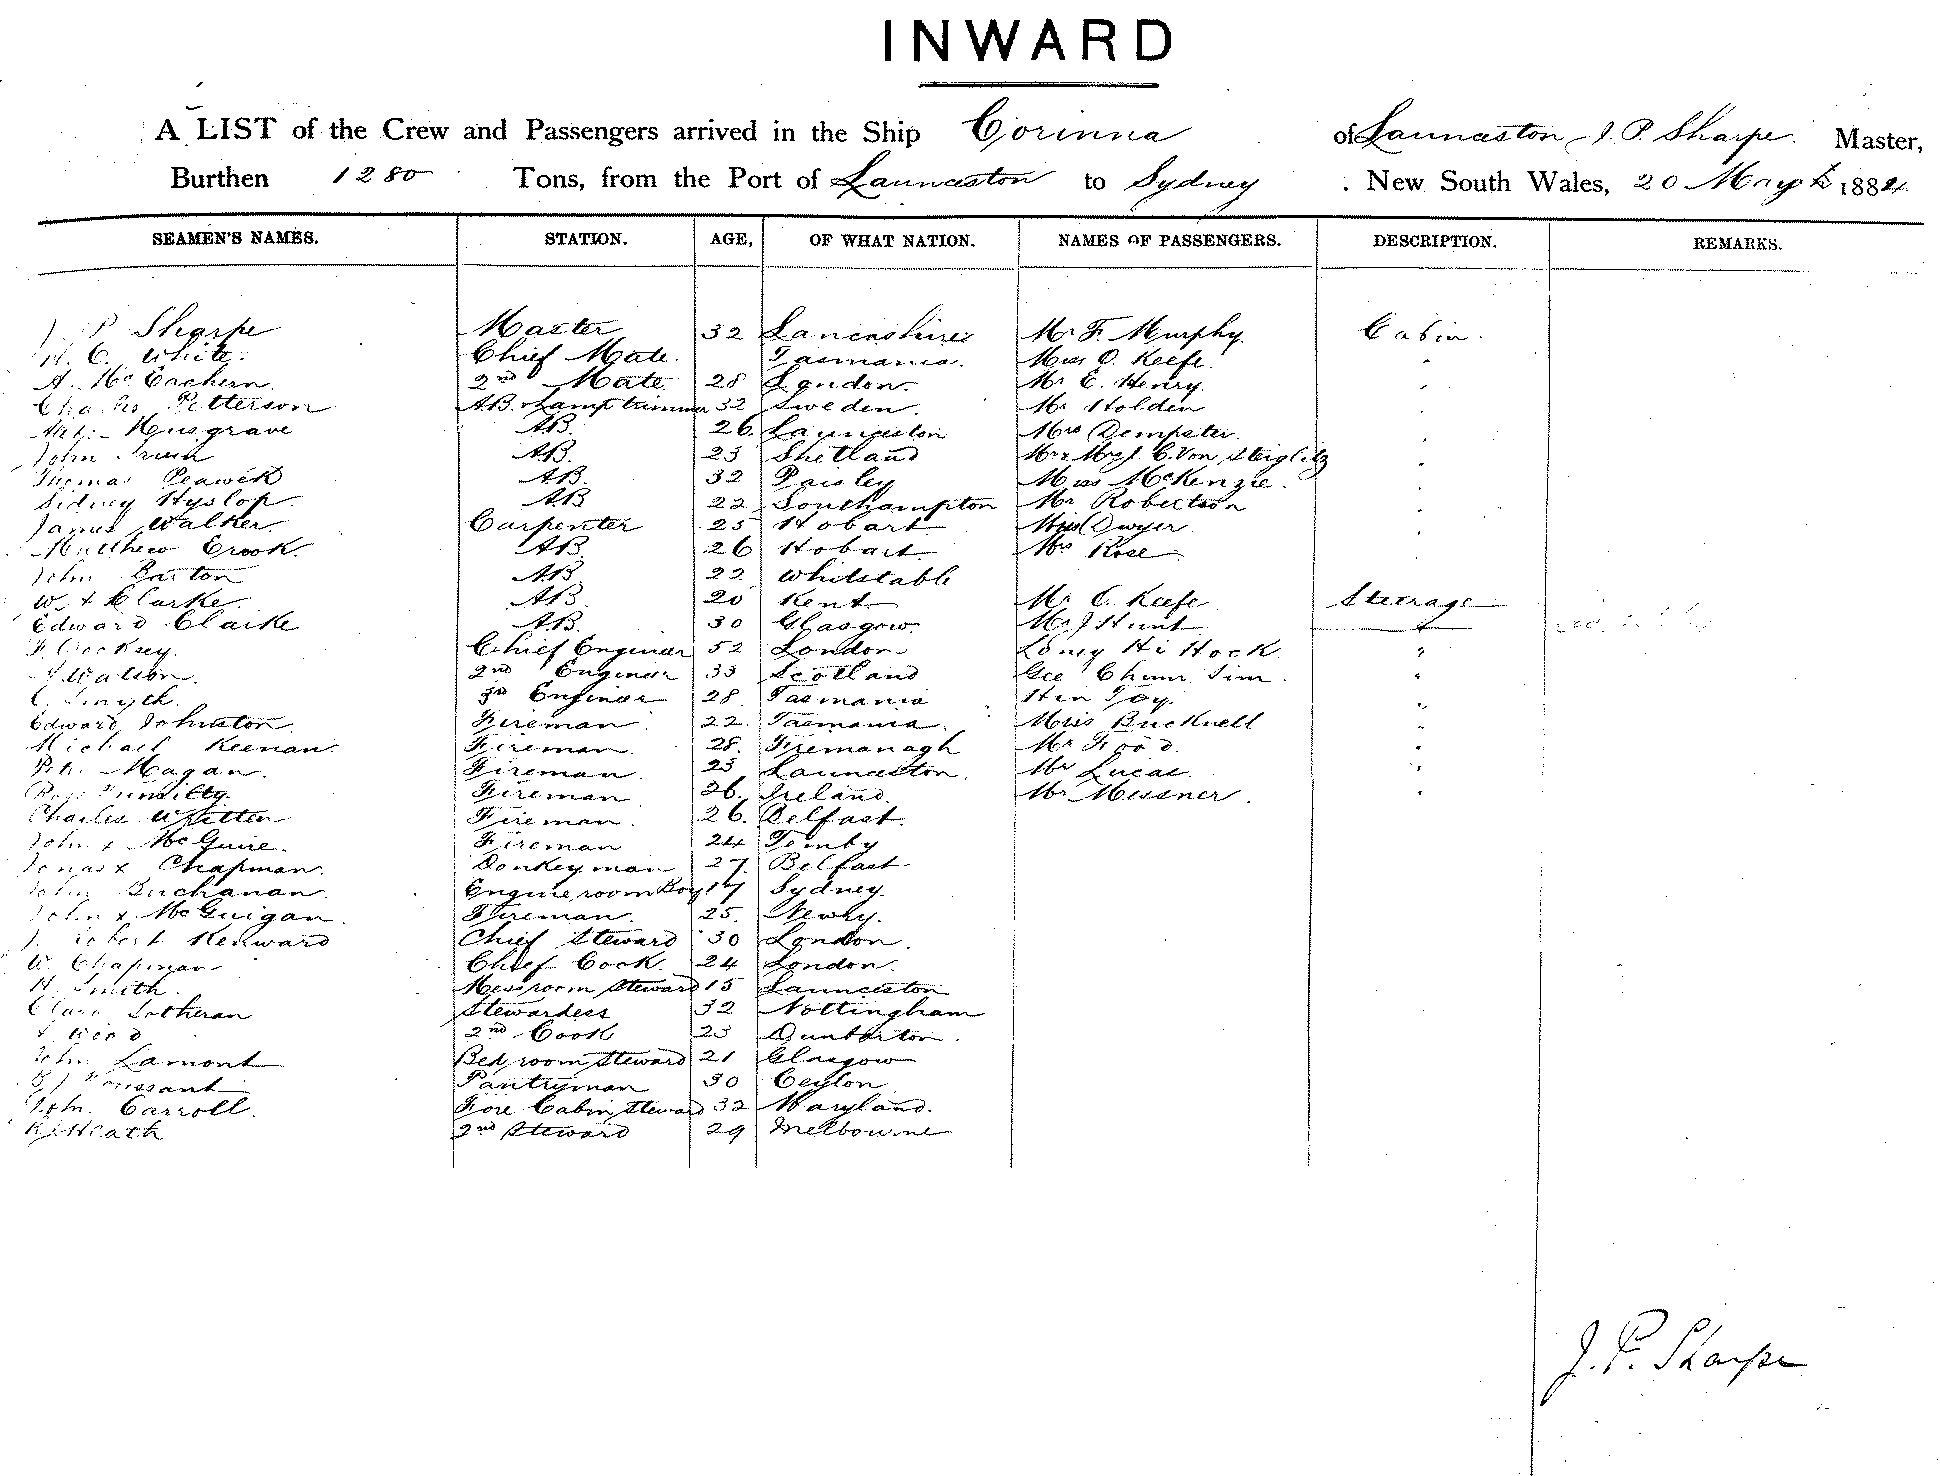 INWARD
A LIST of the Crew and Passengers arrived in the Ship Corinna of Launceston J. P. Sharpe. Master,
Burthen 1280 Tons, from the Port of Launceston to Sydney New South Wales, 20 May 1884
SEAMEN'S NAMES. STATION. AGE, OF WHAT NATION. NAMES OF PASSENGERS. DESCRIPTION. REMARKS.
J. P Sharpe Master 32 Lancashire Mr F. Murphy. Cabin.
C. White. Chief Mate. Tasmania. Miss O. Keefe. "
A. McEachern. 2nd Mate 28 London. Mr E. Henry. "
Charles Petterson AB. & Lamptrimmer 32 Sweden. Mr Holden "
Musgrave AB. 26. Launceston Mrs Dempster. "
John AB. 23 Shetland Mr & Mrs J. C. Von Steiglitz "
Thomas AB. 32 Paisley Miss McKenzie. "
Sidney Hyslop. AB 22 Southampton Mr Robertson "
James Walker. Carpenter 25 Hobart Dwyer "
Matthew Crook. AB. 26 Hobart Mr Rose "
John Barton AB 22 Whitstable
W. x Clarke. AB. 20 Kent Mr O. Keefe Steerage
Edward Clarke AB. 30 Glasgow. Mr J Hunt "
Chief Engineer 52 London Long Hi Hock "
Watson. 2nd Engineer 33 Scotland Gee Chum Sim. "
C. Smyth. 3rd Engineer 28. Tasmania Hin Toy. "
Edward Johnston. Fireman 22. Tasmania. Miss Bucknell "
Michael Keenan. Fireman 28. Firemanagh Mr Food. "
Magan. Fireman. 23 Launceston. Mr Lucas. "
Fireman. 26. Ireland. Mr Messner. "
Charles Fireman. 26. Belfast.
John x McGuire. Fireman 24 Tomby
Jonas x Chapman. Donkeyman 27. Belfast
John Buchanan. Engine room Boy 17 Sydney.
John x McGuigan. Fireman. 25. Newry.
J. Robert Kenward Chief Steward 30 London.
W. Chapman Chief Cook. 24 London.
H. Smith. Messroom Steward 15 Launceston
Clara Lotheran Stewardess 32 Nottingham
Wood 2nd Cook 23 Dunbarton.
John Lamont Bed room Steward 21 Glasgow
Pantryman 30 Ceylon
John. Carroll. Fore Cabin Steward 32 Maryland.
Heath 2nd Steward 29 Melbourne
J. P. Sharpe